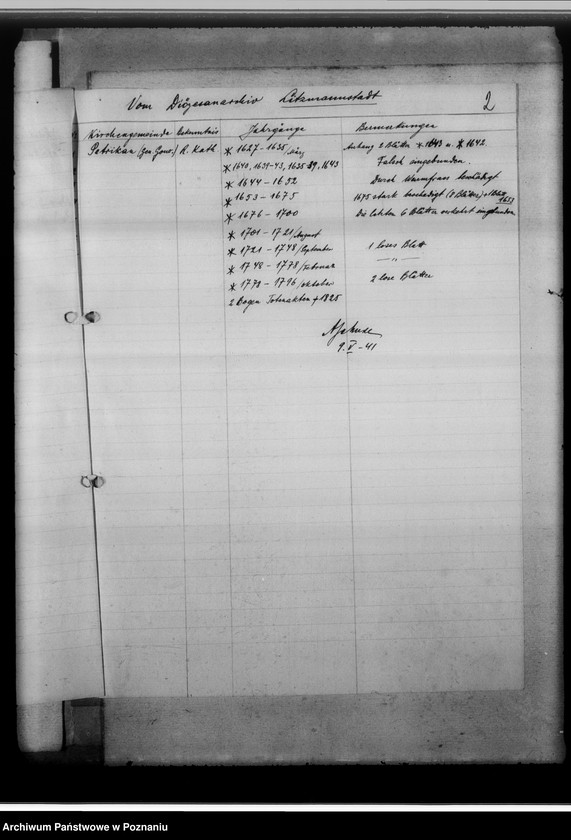 Vom Diözesanarchiv Litzmannstadt 2
Kirchengemeinde Bekenntnis Jahrgänge Bemerkungen
Petrikau (Gen. Gouv.) R. Kath * 1627 - 1635, März Anhang 2 Blätter * 1643 u. * 1642
* 1640, 1639-43, 1635-39, 1643 Falsch eingebunden.
* 1644 - 1652 Durch Wurmfrass beschädigt
* 1653 - 1675 1675 stark beschädigt (8 Blätter) + 1 Blatt 1653
* 1676 - 1700 Die letzten 6 Blätter verkehrt eingebunden
* 1701 - 1721/August
* 1721 - 1748/September 1 loses Blatt
* 1748 - 1778/Februar — " —
* 1779 - 1796/Oktober 2 lose Blätter
2 Bogen Totenakten + 1825
9. V - 41